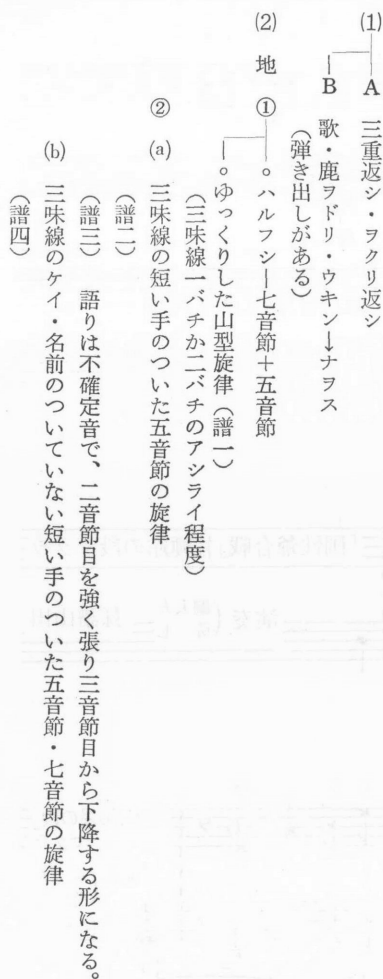 (1) A 三重返シ・ヲクリ返シ
B 歌・鹿ヲドリ・ウキン→ナヲス
(弾き出しがある)
(2) 地 ① ○ハルフシ―七音節+五音節
○ゆっくりした山型旋律(譜一)
(三味線一バチか二バチのアシライ程度)
② (a) 三味線の短い手のついた五音節の旋律
(譜二)
(譜三) 語りは不確定音で、二音節目を強く張り三音節目から下降する形になる。
(b) 三味線のケイ・名前のついていない短い手のついた五音節・七音節の旋律
(譜四)